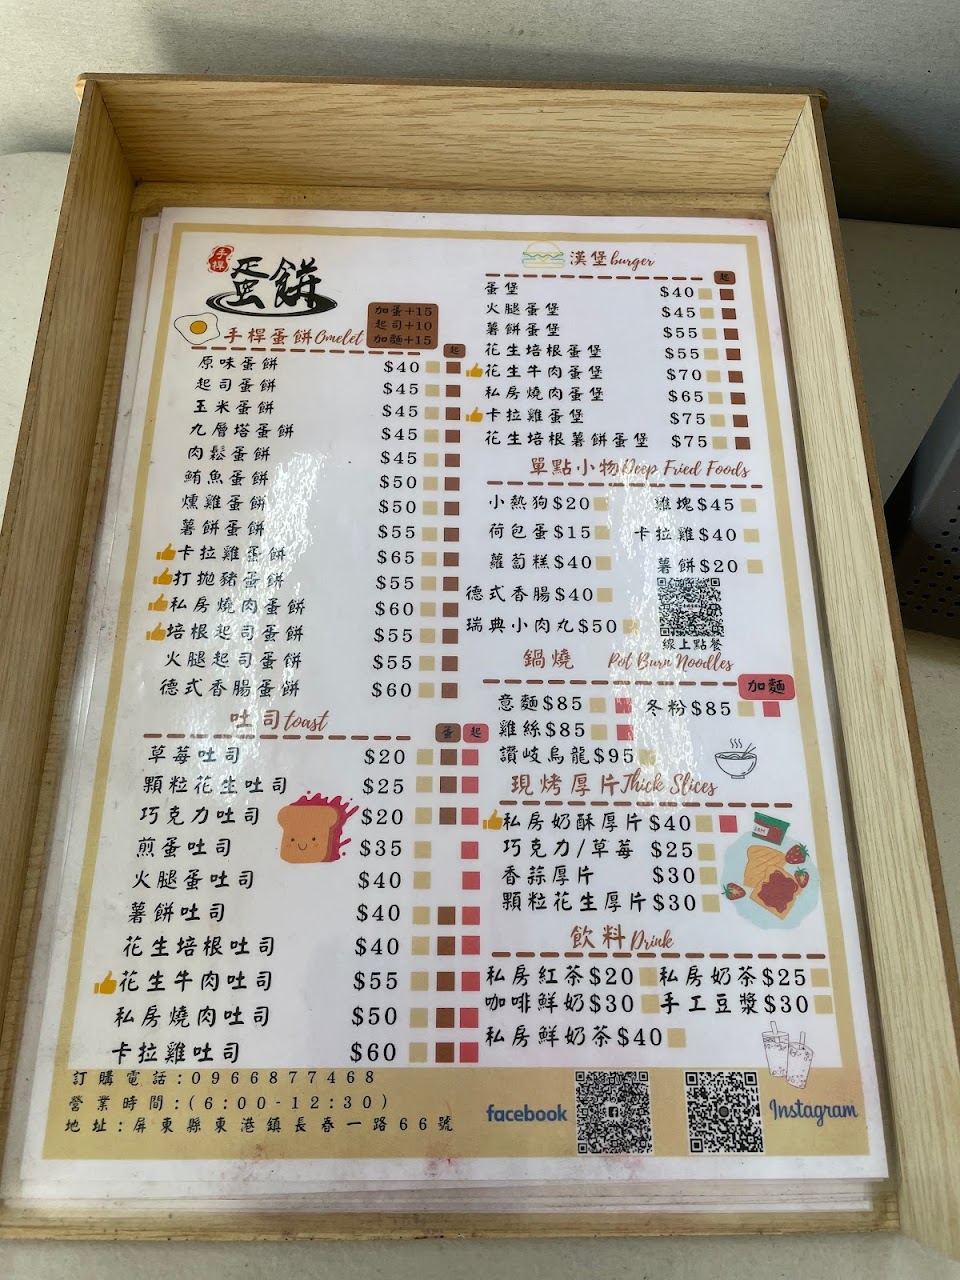 手桿
蛋餅
加蛋+15
起司+10
加麵+15
手桿蛋餅 Omelet
起
原味蛋餅 $40
起司蛋餅 $45
玉米蛋餅 $45
九層塔蛋餅 $45
肉鬆蛋餅 $45
鮪魚蛋餅 $50
燻雞蛋餅 $50
薯餅蛋餅 $55
卡拉雞蛋餅 $65
打拋豬蛋餅 $55
私房燒肉蛋餅 $60
培根起司蛋餅 $55
火腿起司蛋餅 $55
德式香腸蛋餅 $60
吐司 toast
蛋 起
草莓吐司 $20
顆粒花生吐司 $25
巧克力吐司 $20
煎蛋吐司 $35
火腿蛋吐司 $40
薯餅吐司 $40
花生培根吐司 $40
花生牛肉吐司 $55
私房燒肉吐司 $50
卡拉雞吐司 $60
漢堡 burger
起
蛋堡 $40
火腿蛋堡 $45
薯餅蛋堡 $55
花生培根蛋堡 $55
花生牛肉蛋堡 $70
私房燒肉蛋堡 $65
卡拉雞蛋堡 $75
花生培根薯餅蛋堡 $75
單點小物 Deep Fried Foods
小熱狗$20 雞塊$45
荷包蛋$15 卡拉雞$40
蘿蔔糕$40 薯餅$20
德式香腸$40
瑞典小肉丸$50
線上點餐
鍋燒 Pot Burn Noodles
加麵
意麵$85 冬粉$85
雞絲$85
讚岐烏龍$95
現烤厚片 Thick Slices
私房奶酥厚片$40
巧克力/草莓 $25
香蒜厚片 $30
顆粒花生厚片$30
飲料 Drink
私房紅茶$20 私房奶茶$25
咖啡鮮奶$30 手工豆漿$30
私房鮮奶茶$40
訂購電話:0966877468
營業時間:(6:00-12:30)
地址:屏東縣東港鎮長春一路66號
facebook
Instagram